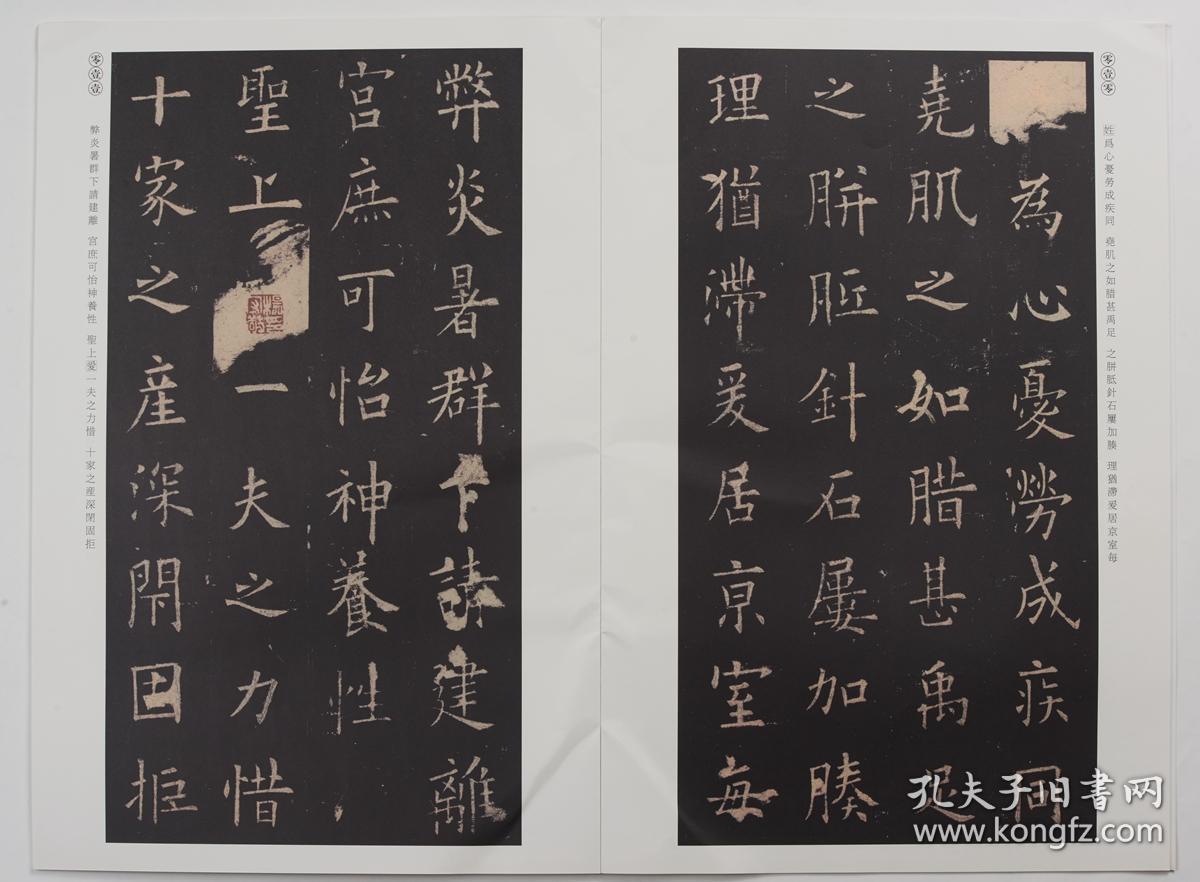 零壹零
姓爲心憂勞成疾同 堯肌之如腊甚禹足 之胼胝針石屢加腠 理猶滯爰居京室每
為心憂勞成疾同
堯肌之如腊甚禹足
之胼胝針石屢加腠
理猶滯爰居京室每
弊炎暑群下請建離
宮庶可怡神養性
聖上一夫之力惜
十家之産深閉固拒
零壹壹
弊炎暑群下請建離 宮庶可怡神養性 聖上愛一夫之力惜 十家之産深閉固拒
孔夫子旧书网
www.kongfz.com